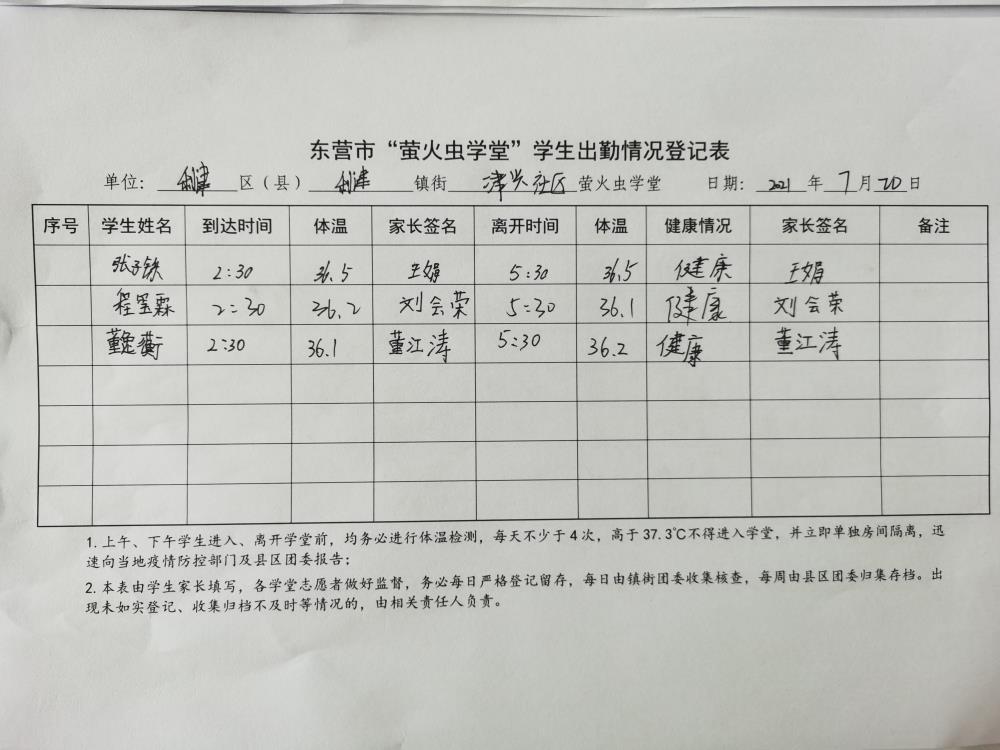 东营市“萤火虫学堂”学生出勤情况登记表
单位：利津区（县）利津镇街津兴社区萤火虫学堂 日期：2021年7月20日
序号 学生姓名 到达时间 体温 家长签名 离开时间 体温 健康情况 家长签名 备注
张子铁 2:30 36.5 王娟 5:30 36.5 健康 王娟
程玺霖 2:30 36.2 刘会荣 5:30 36.1 健康 刘会荣
董 衡 2:30 36.1 董江涛 5:30 36.2 健康 董江涛
1.上午、下午学生进入、离开学堂前，均务必进行体温检测，每天不少于4次，高于37.3℃不得进入学堂，并立即单独房间隔离，迅
速向当地疫情防控部门及县区团委报告；
2.本表由学生家长填写，各学堂志愿者做好监督，务必每日严格登记留存，每日由镇街团委收集核查，每周由县区团委归集存档。出
现未如实登记、收集归档不及时等情况的，由相关责任人负责。